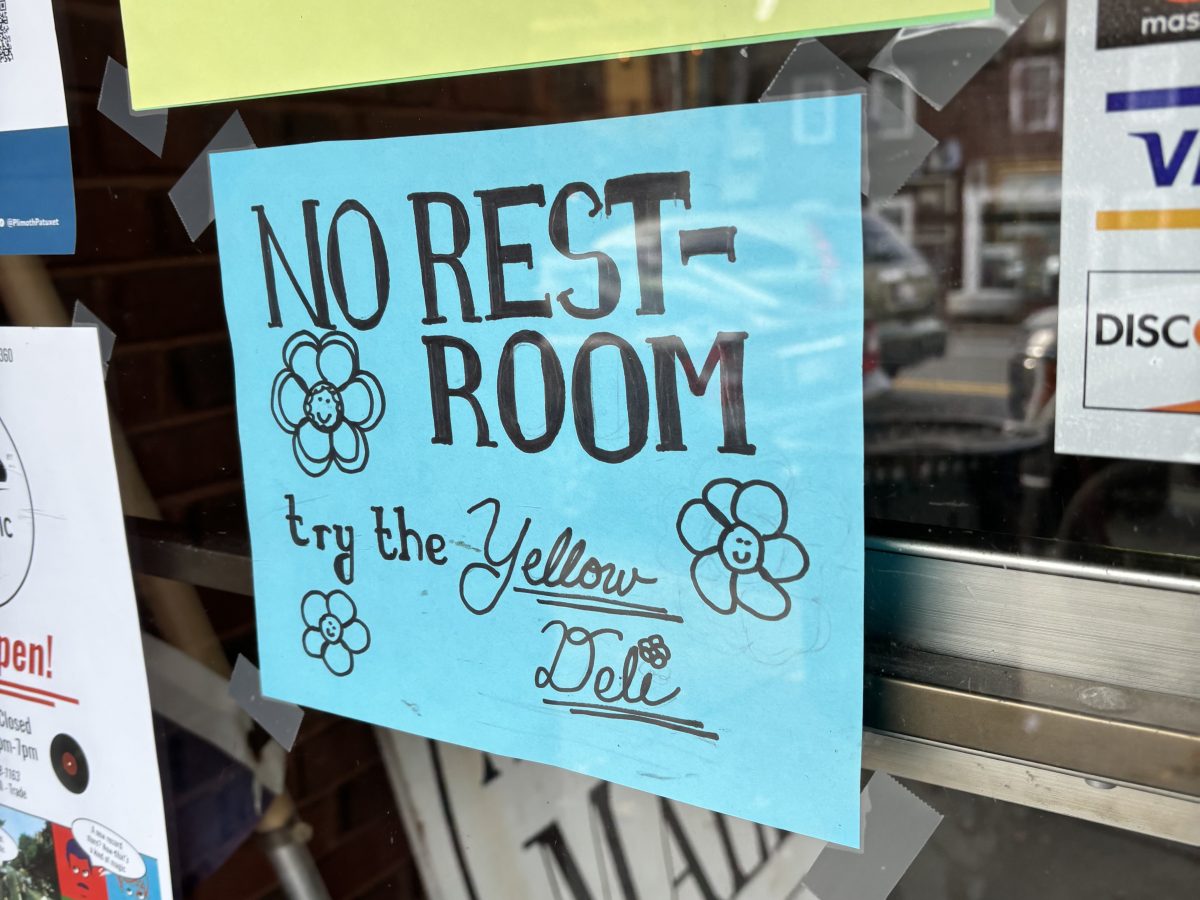 NO REST-
ROOM
try the Yellow
Deli
@PlimothPatuxet
360
IC
pen!
Closed
pm-7pm
-7163
- Trade
A new record
store? Now that's
a kind of magic
mas
VI
DISCO
MAD